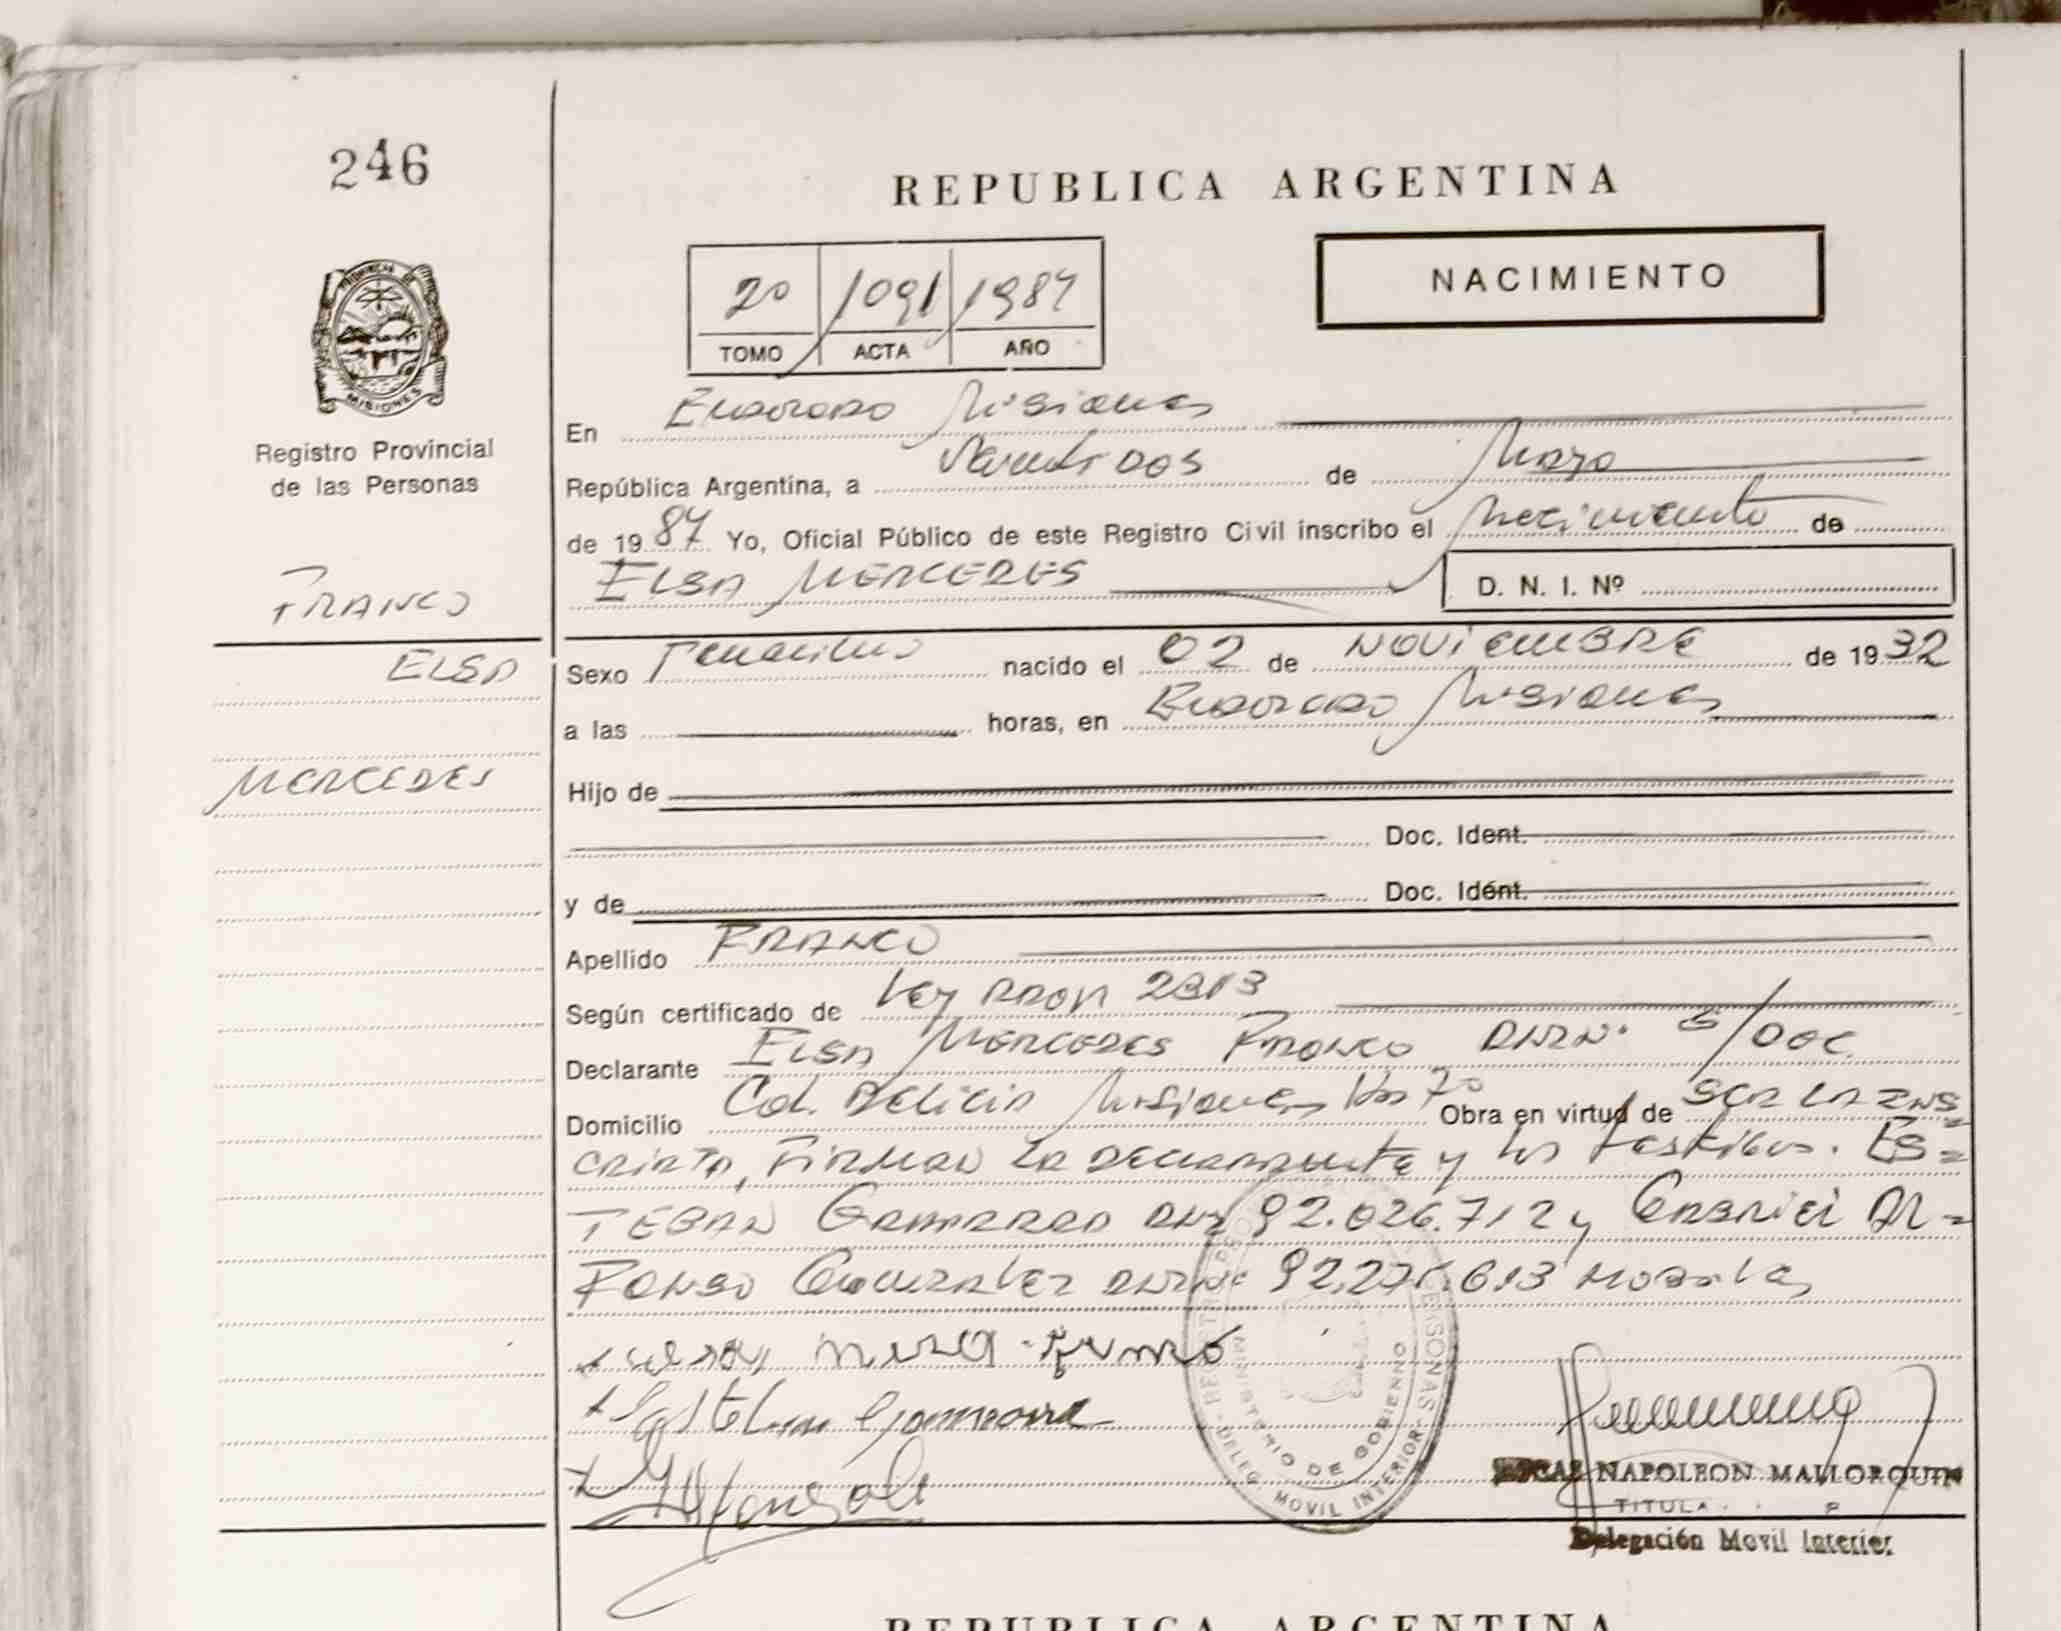 246
REPUBLICA ARGENTINA
NACIMIENTO
20 1091 1987
TOMO ACTA AÑO
PROVINCIA DE
MISIONES
Registro Provincial
de las Personas
En Eldorado Misiones
República Argentina, a Veintidos de Mayo
de 1987 Yo, Oficial Público de este Registro Civil inscribo el Nacimiento de
ELSA MERCEDES D. N. I. Nº
FRANCO
ELSA
MERCEDES
Sexo Femenino nacido el 02 de NOVIEMBRE de 1932
a las horas, en Eldorado Misiones
Hijo de
Doc. Ident.
y de Doc. Idént.
Apellido FRANCO
Según certificado de Ley 2313
Declarante Elsa Mercedes Franco S/DOC
Domicilio Col. Delicia Misiones Km 70 Obra en virtud de SER LA INS=
CRIPTA, Firman la declarante y los testigos. ES=
TEBAN Gamarra DNI 92.026.712 y Gabriel Al=
FONSO Gonzalez 613
Gamarra
REGISTRO PERSONAS
MINISTERIO DE GOBIERNO
DELEG MOVIL INTERIOR
NAPOLEON MALLORQUIN
TITULA
Delegación Movil Interior
REPUBLICA ARGENTINA